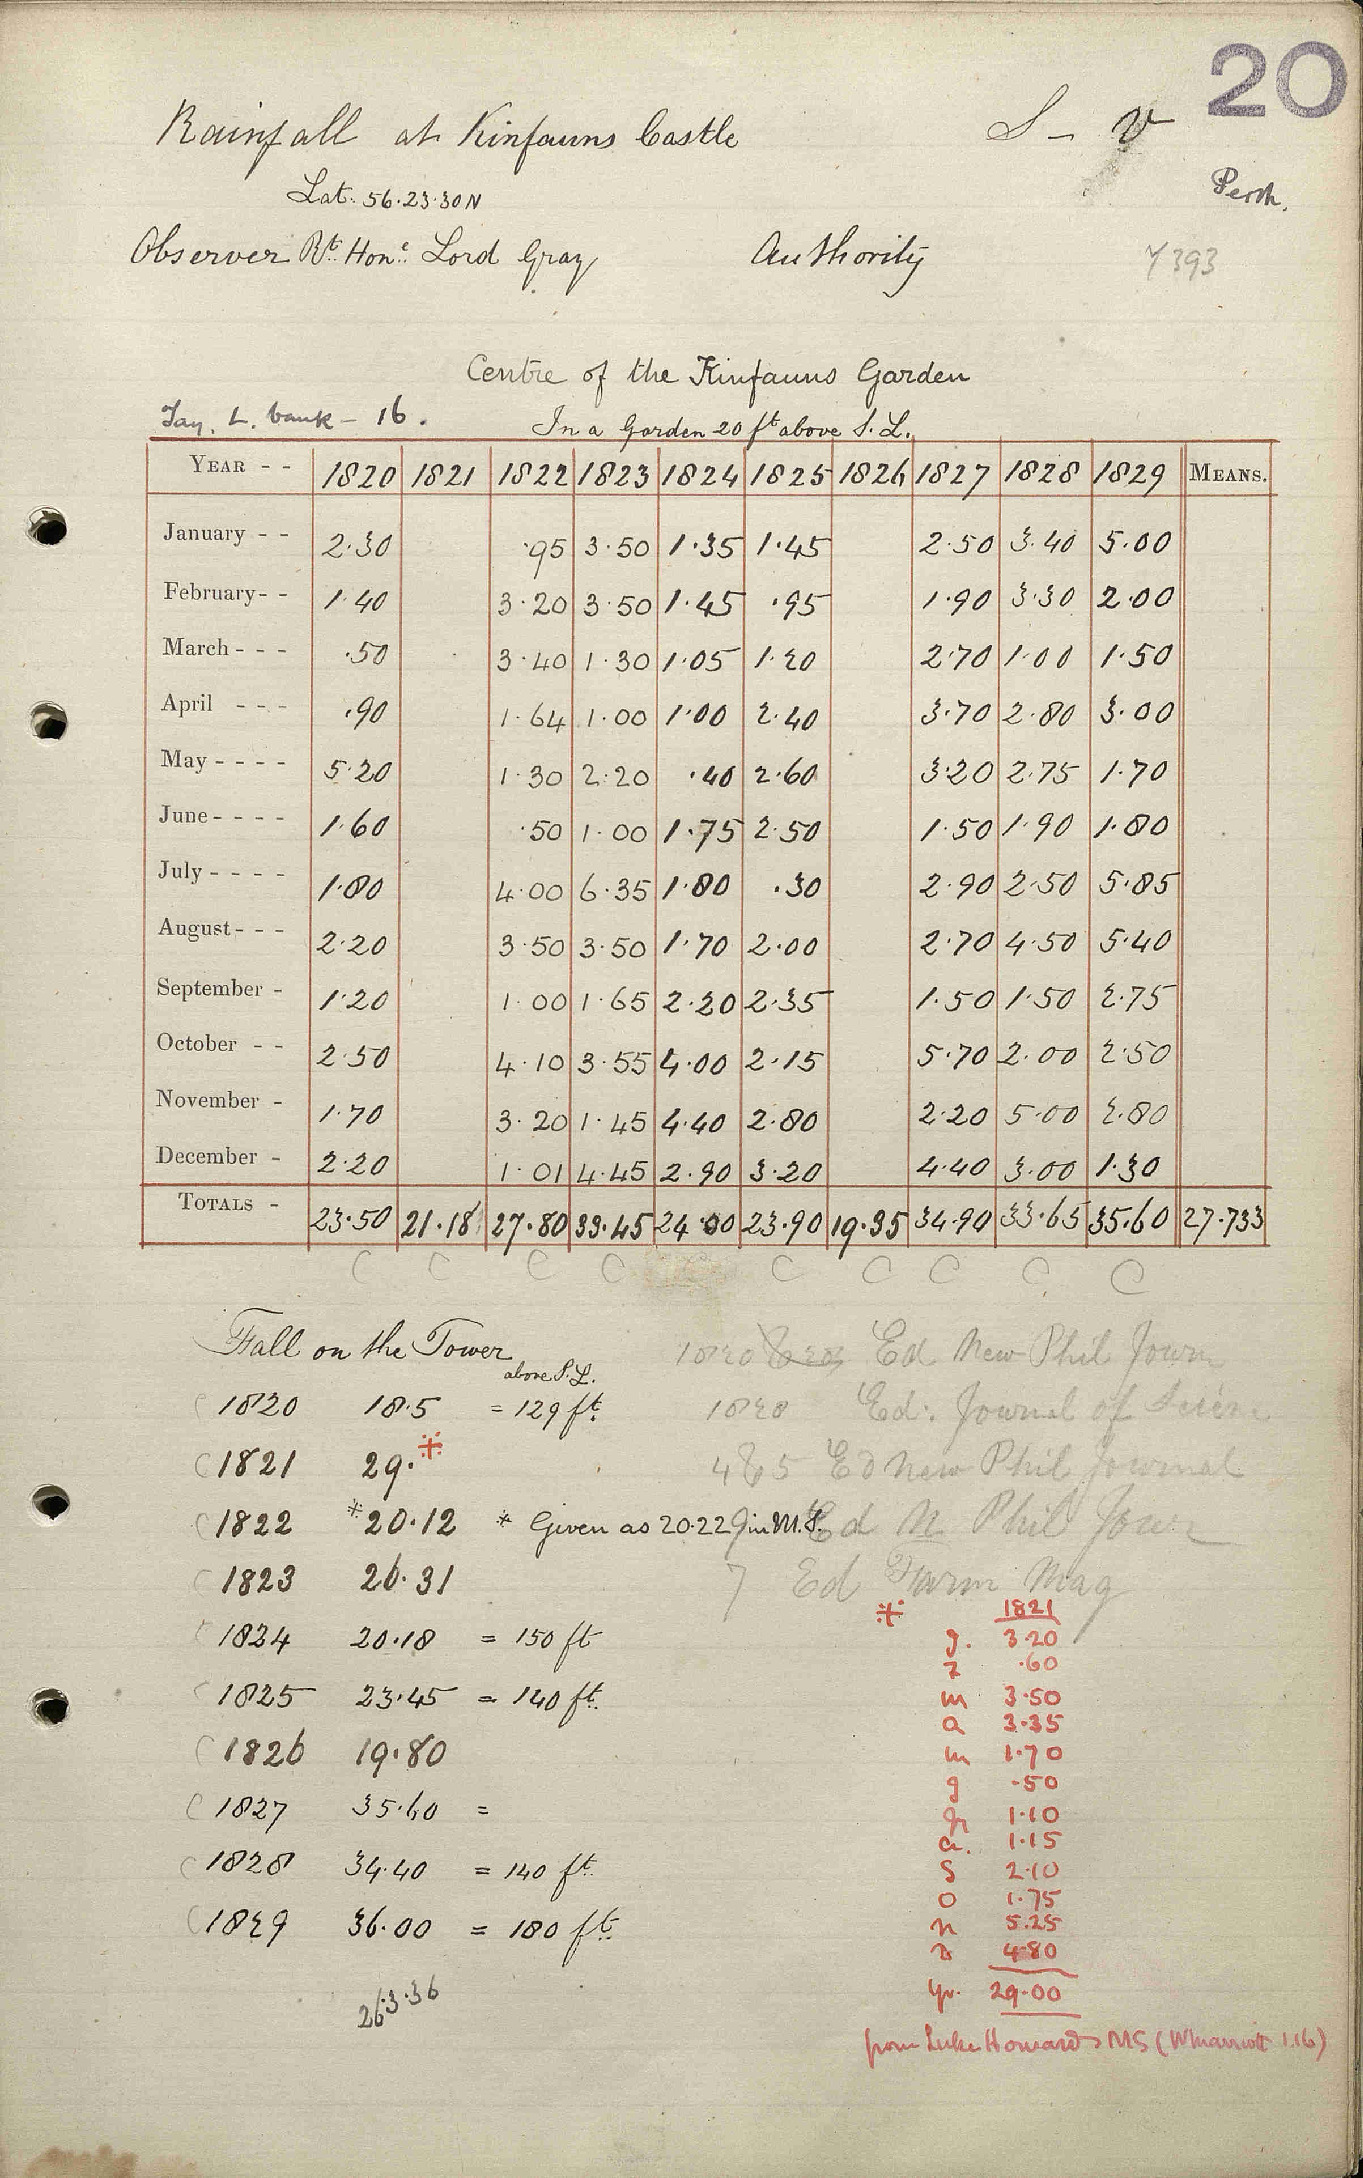 20
Rainfall at Kinfauns Castle S - v
Lat. 56.23.30N Perth.
Observer Rt. Hon.e Lord Gray Authority 7393
Centre of the Kinfauns Garden
Tay. L. bank - 16.
In a Garden 20 ft above S.L.
YEAR - - 1820 1821 1822 1823 1824 1825 1826 1827 1828 1829 MEANS.
January - - 2.30 .95 3.50 1.35 1.45 2.50 3.40 5.00
February - - 1.40 3.20 3.50 1.45 .95 1.90 3.30 2.00
March - - - .50 3.40 1.30 1.05 1.20 2.70 1.00 1.50
April - - - .90 1.64 1.00 1.00 2.40 3.70 2.80 3.00
May - - - - 5.20 1.30 2.20 .40 2.60 3.20 2.75 1.70
June - - - - 1.60 .50 1.00 1.75 2.50 1.50 1.90 1.80
July - - - - 1.80 4.00 6.35 1.80 .30 2.90 2.50 5.85
August - - - 2.20 3.50 3.50 1.70 2.00 2.70 4.50 5.40
September - 1.20 1.00 1.65 2.20 2.35 1.50 1.50 2.75
October - - 2.50 4.10 3.55 4.00 2.15 5.70 2.00 2.50
November - 1.70 3.20 1.45 4.40 2.80 2.20 5.00 2.80
December - 2.20 1.01 4.45 2.90 3.20 4.40 3.00 1.30
TOTALS - 23.50 21.18 27.80 33.45 24.00 23.90 19.35 34.90 33.65 35.60 27.733
C C C C C C C C C
Fall on the Tower 1820 Ed New Phil Journ
above S.L.
C 1820 18.5 = 129 ft. 1828 Ed. Journal of Science
C 1821 29.* 4 & 5 Ed New Phil Journal
C 1822 *20.12 * Given as 20.22 in M.S. Ed N Phil Jour
C 1823 26.31 7 Ed Farm Mag
C 1824 20.18 = 150 ft
C 1825 23.45 = 140 ft.
C 1826 19.80
C 1827 35.60 =
C 1828 34.40 = 140 ft.
C 1829 36.00 = 180 ft.
263.36
* 1821
J. 3.20
F .60
m 3.50
a 3.35
m 1.70
J .50
Jy 1.10
a. 1.15
S 2.10
O 1.75
n 5.25
D 4.80
Yr. 29.00
from Luke Howard's MS (W Marriott 1.16)